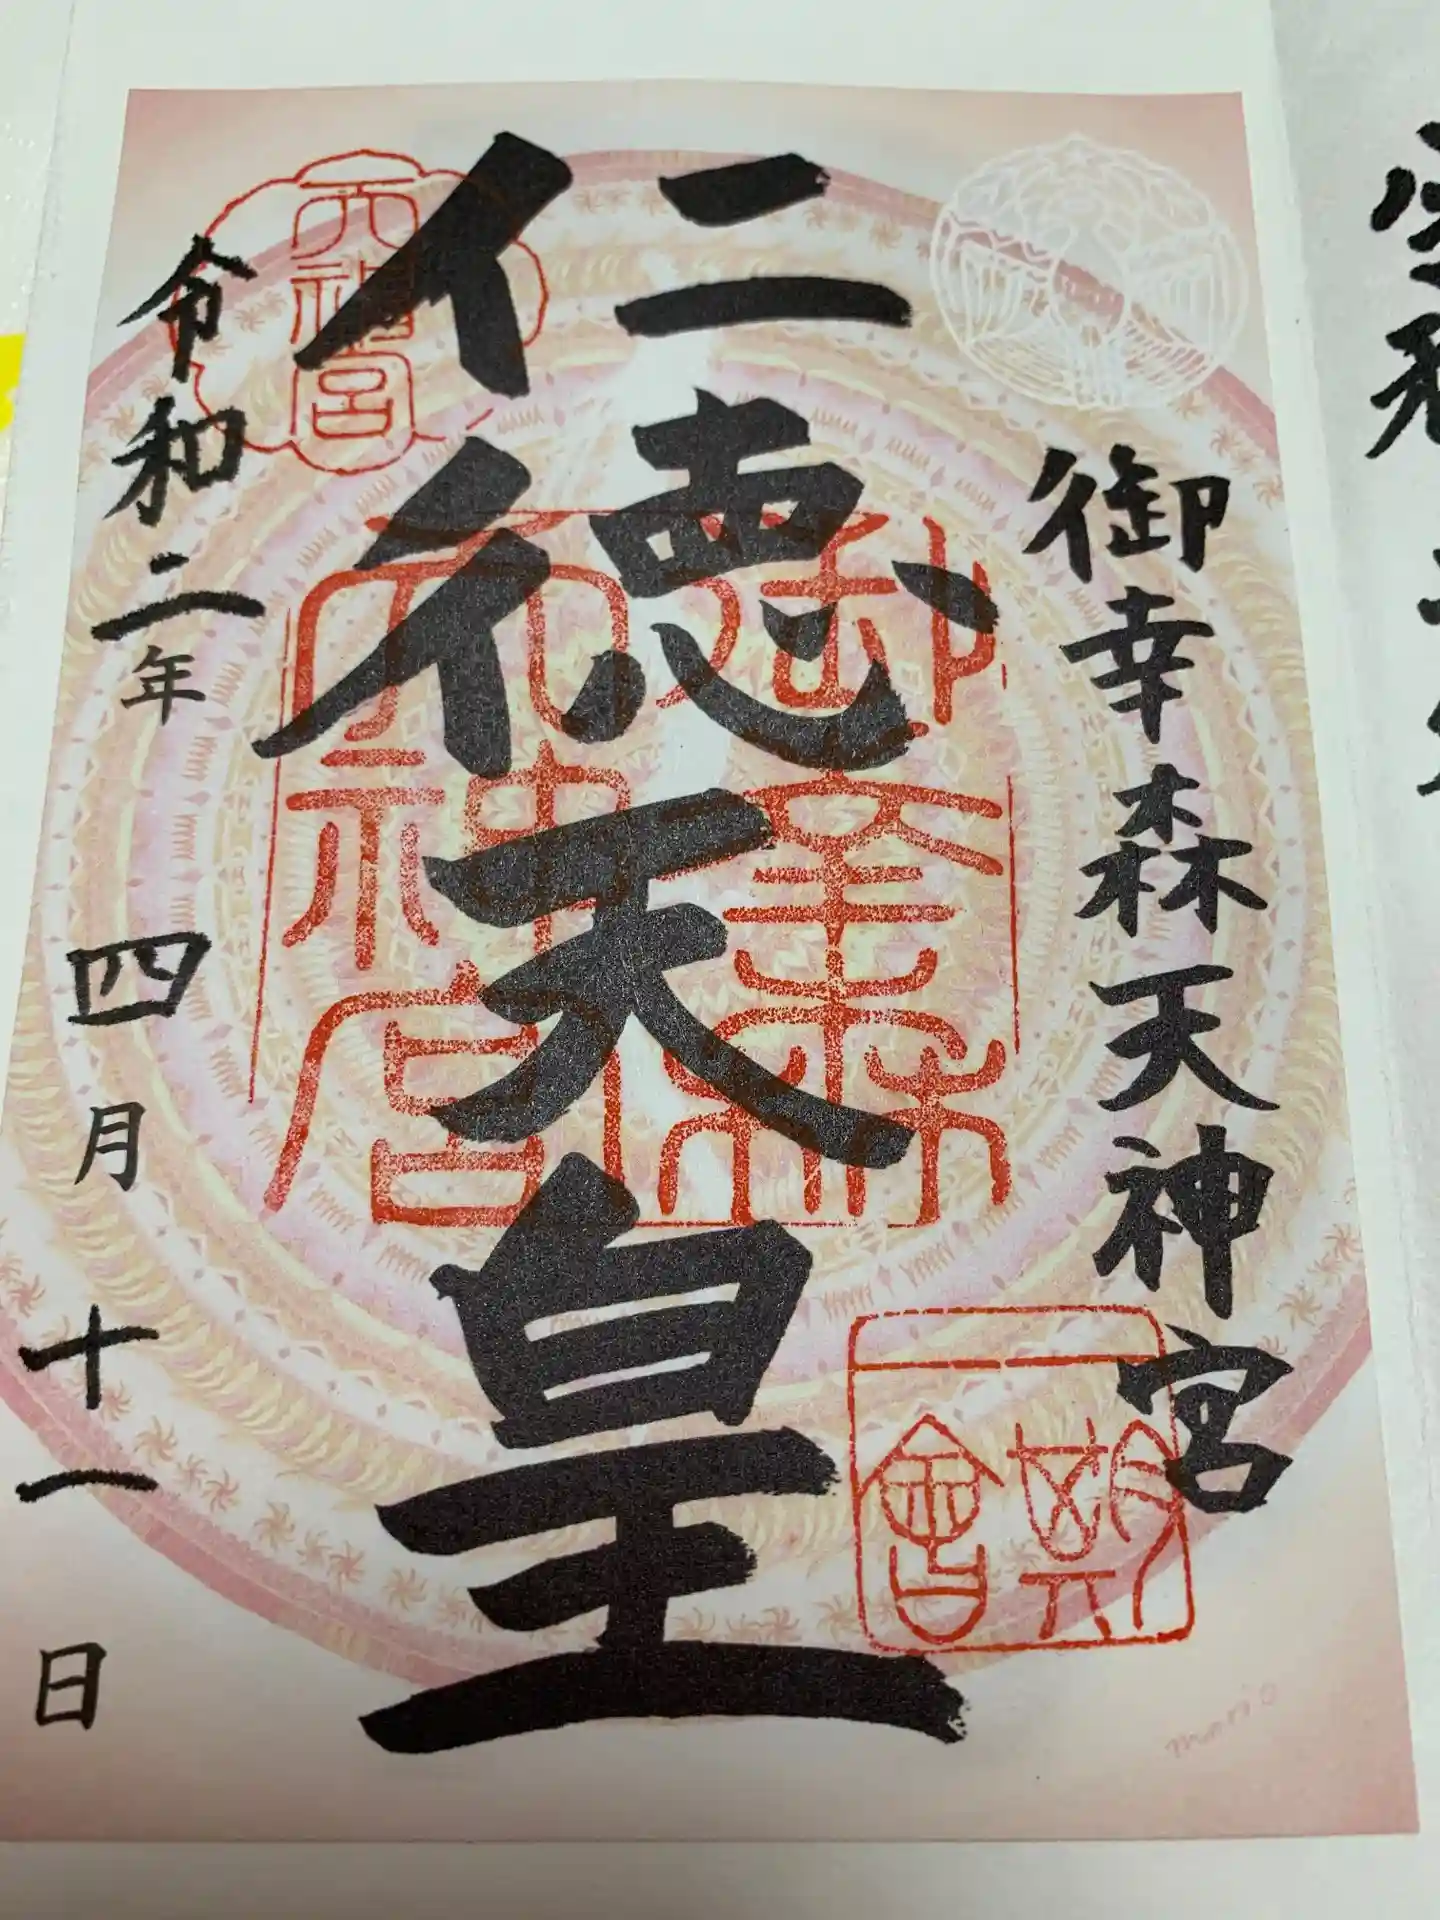 御幸森天神宮
仁徳天皇
令和二年四月十一日
天神宮
御幸森
天神宮
mario